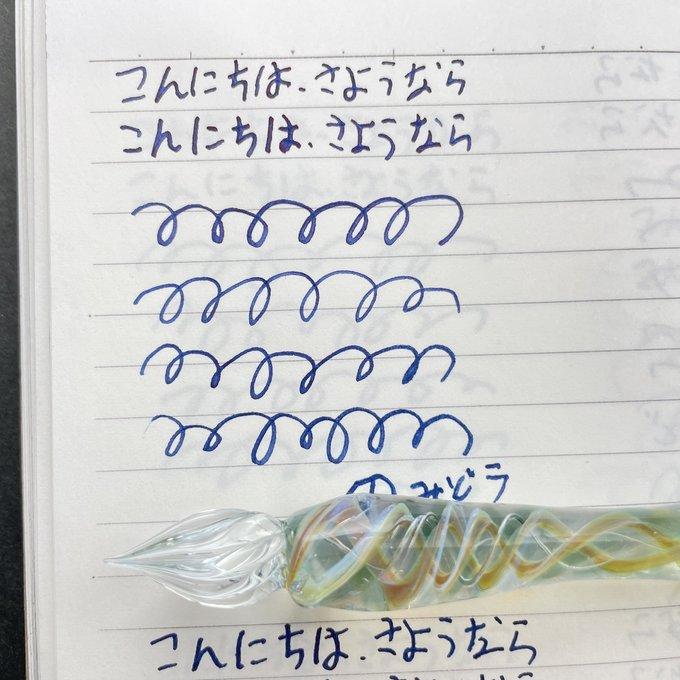 こんにちは.さようなら
こんにちは.さようなら
① みどう
こんにちは.さようなら